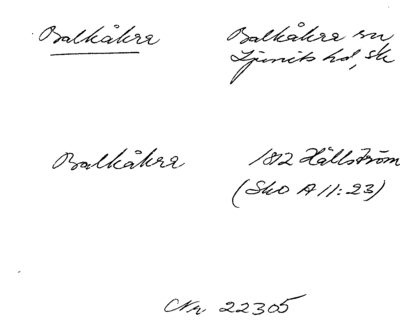 Balkåkra Balkåkra sn
Ljunits hd, Sk
Balkåkra 1812 Hällström
(SkO A 11:23)
Nr 22305